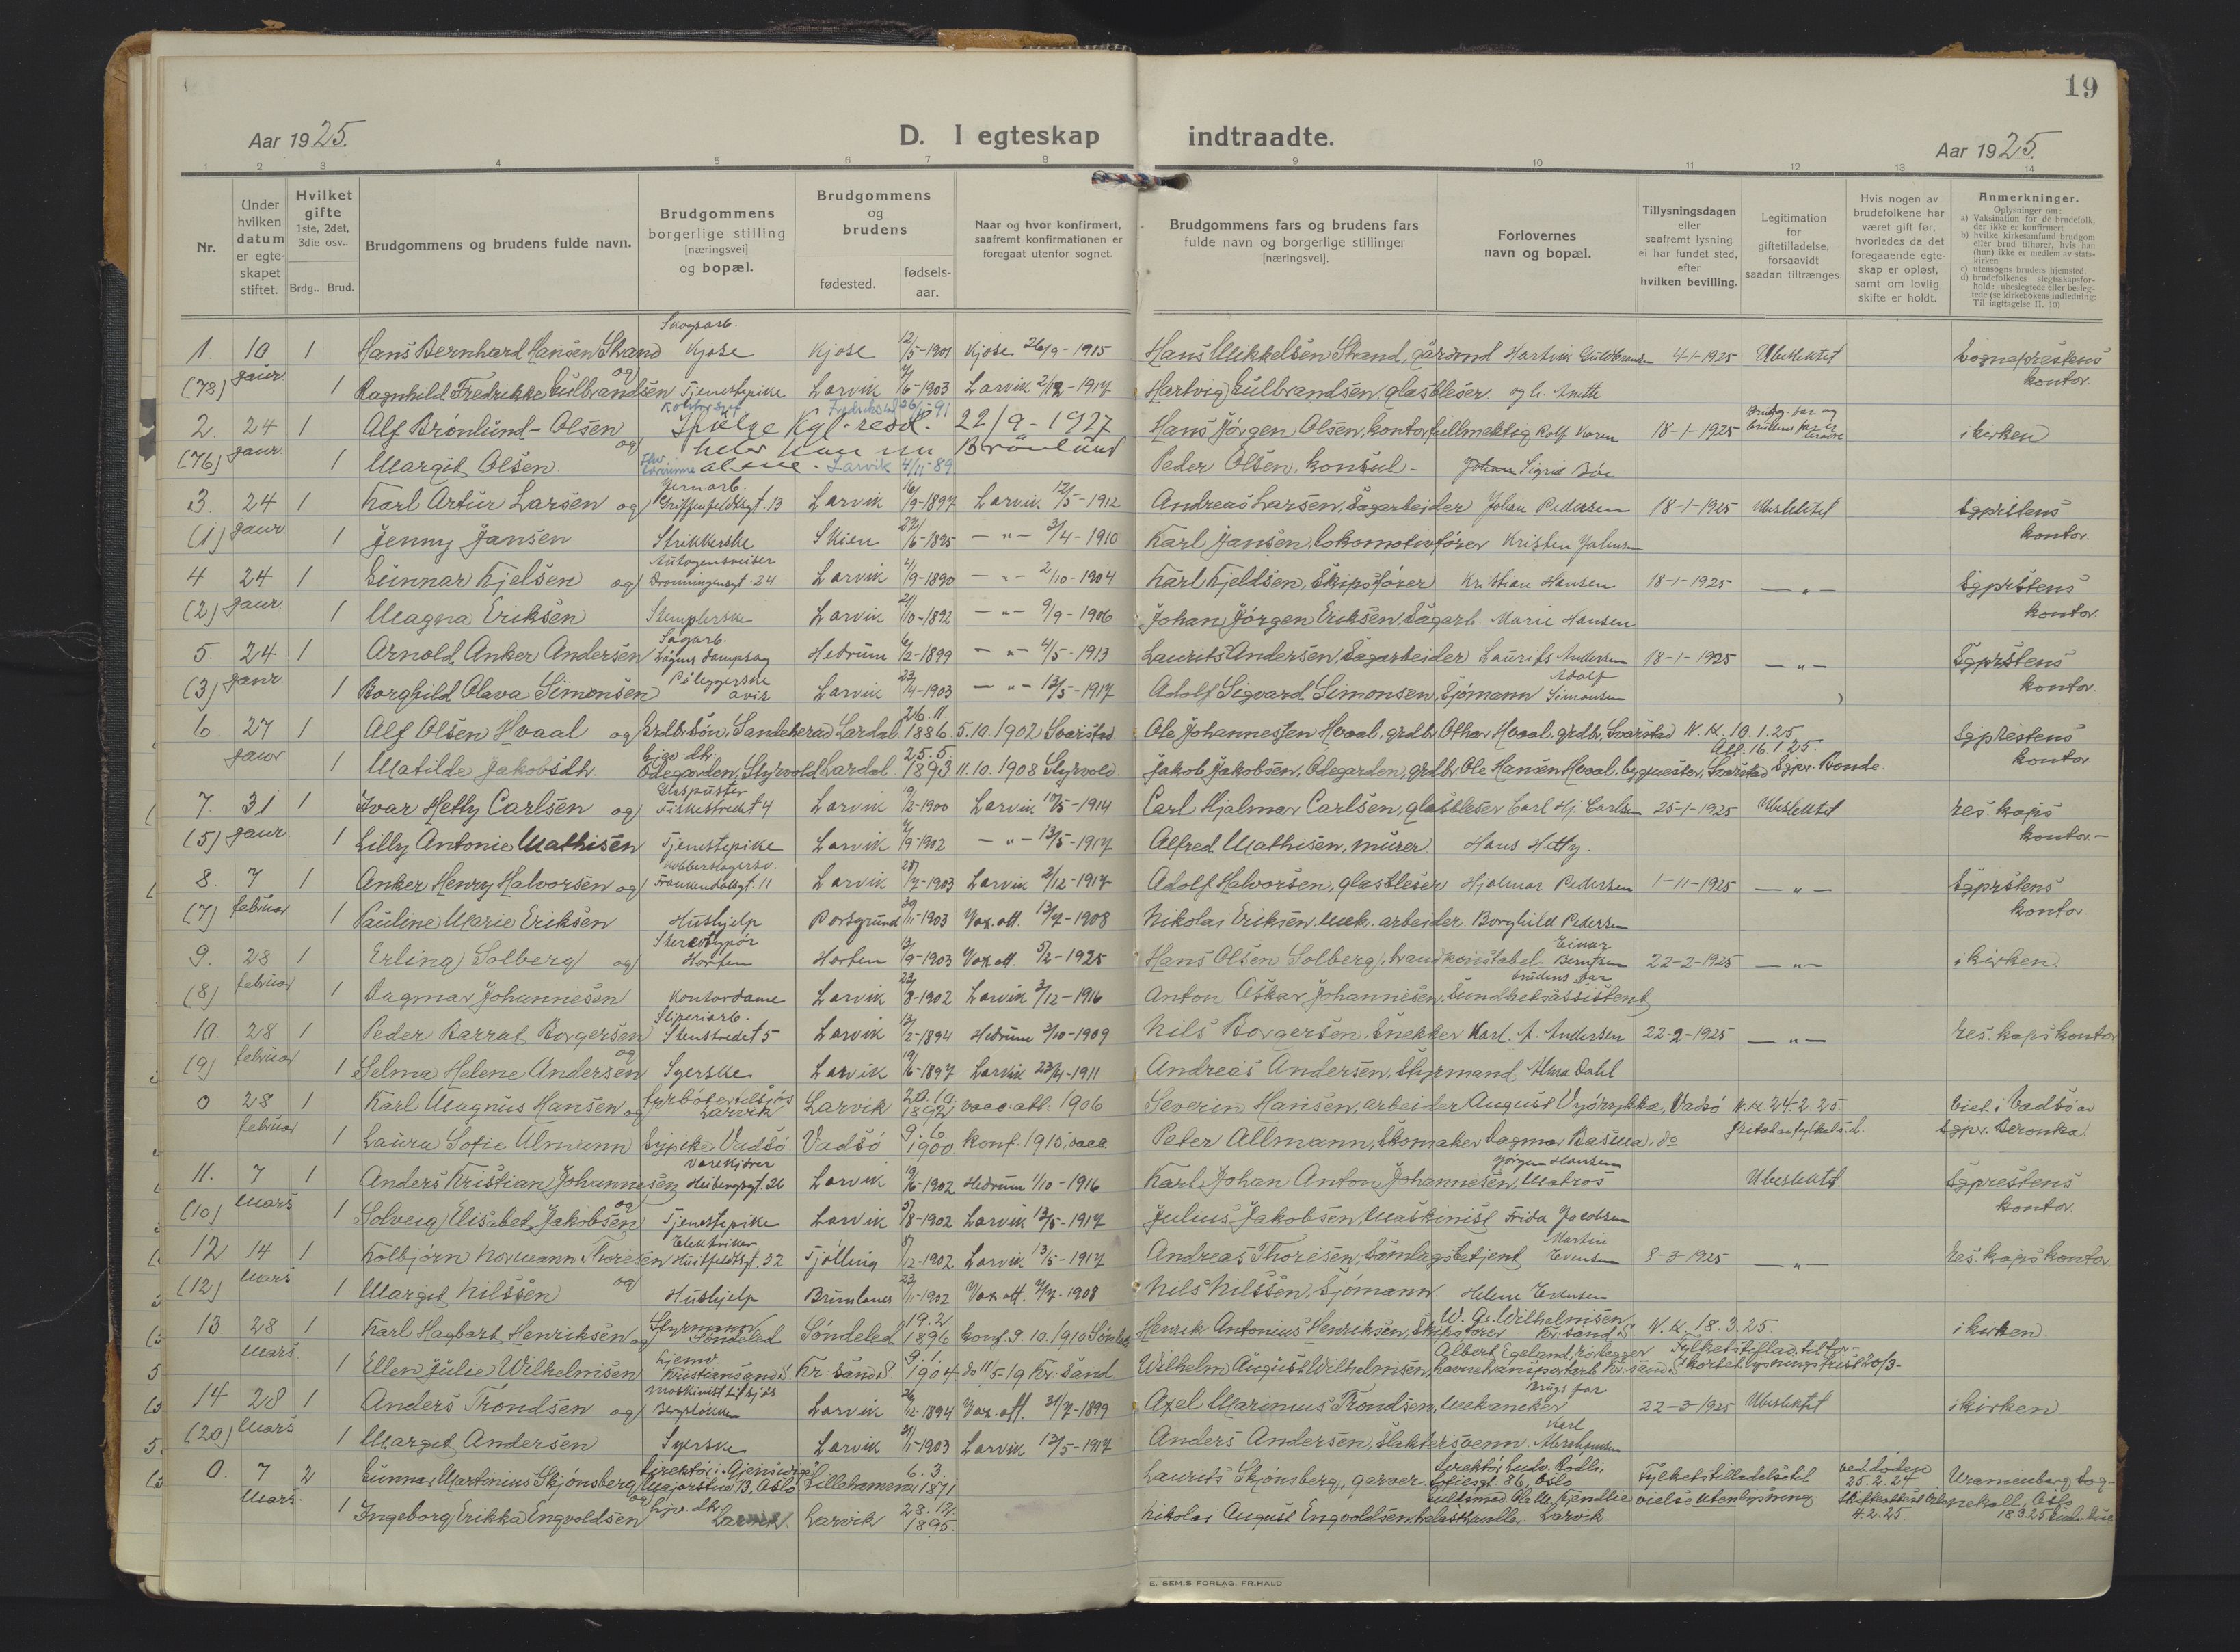 19
Aar 1925.
D. I egteskap indtraadte.
Aar 1925.
1 2 3 4 5 6 7 8 9 10 11 12 13 14
Nr.
Under hvilken datum er egte-skapet stiftet.
Hvilket gifte 1ste, 2det, 3die osv..
Brdg.. Brud.
Brudgommens og brudens fulde navn.
Brudgommens borgerlige stilling [næringsvei] og bopæl.
Brudgommens og brudens
fødested.
fødsels-aar.
Naar og hvor konfirmert, saafremt konfirmationen er foregaat utenfor sognet.
Brudgommens fars og brudens fars fulde navn og borgerlige stillinger [næringsvei].
Forlovernes navn og bopæl.
Tillysningsdagen eller saafremt lysning ei har fundet sted, efter hvilken bevilling.
Legitimation for giftetilladelse, forsaavidt saadan tiltrænges.
Hvis nogen av brudefolkene har været gift før, hvorledes da det foregaaende egte-skap er opløst, samt om lovlig skifte er holdt.
Anmerkninger.
Oplysninger om:
a) Vaksination for de brudefolk, der ikke er konfirmert
b) hvilke kirkesamfund brudgom eller brud tilhører, hvis han (hun) ikke er medlem av stats-kirken
c) utensogns bruders hjemsted.
d) brudefolkenes slegtsskapsfor-hold: ubeslegtede eller besleg-tede (se kirkebokens indledning: Til iagttagelse II. 10)
1. 10 1 Hans Bernhard Hansen Strand Skogsarb. Kjose Kjose 12/5-1901 Kjose 26/9-1915 Hans Mikkelsen Strand, gårdmd Hartvik Guldbrandsen 4-1-1925 Ubeslektet Sogneprestens
(78) januar 1 og Ragnhild Fredrikke Gulbrandsen Tjenestepike Larvik /6-1903 Larvik 2/12-1917 Hartvig Gulbrandsen, glasbleser og h. Anette kontor.
2. 24 1 Alf Brønlund-Olsen Kontorsjef Fredrikstad 26/ -91 Ifølge Kgl. resol. 22/9-1927 Hans Jørgen Olsen, kontorfullmektig Rolf Karen 18-1-1925 Brudg. far og brudens far er i kirken
(76) januar 1 og Margit Olsen heter han nu Brönlund alene - Larvik 4/11-89 Peder Olsen, konsul - Sigrid Böe
3. 24 1 Karl Artur Larsen og Jernarb. Griffenfeldtsgt. 13 Larvik 16/9-1897 Larvik 12/5-1912 Andreas Larsen, Sagarbeider Johan Pedersen 18-1-1925 Ubeslektet Sgprstens
(1) januar 1 Jenny Jansen Strikkerske Skien 22/6-1895 - " - 3/4-1910 Karl Jansen, lokomotivfører Kristen Johnsen kontor.
4 24 1 Gunnar Kjelsen og Autogensveiser Dronningensgt. 24 Larvik 4/9-1890 - " - 2/10-1904 Karl Kjeldsen, Skipsfører Kristian Hansen 18-1-1925 - " - Sgprstens
(2) januar. 1 Magna Eriksen Stemplerske Larvik 21/10-1892 - " - 9/9-1906 Johan Jørgen Eriksen, Sagarb. Marie Hansen kontor.
5. 24 1 Arnold Anker Andersen Sagarb. Lågens Dampsag Hedrum 6/2-1899 - " - 4/5-1913 Laurits Andersen, Sagarbeider Laurits Andersen 18-1-1925 - " - Sgprstens
(3) januar. 1 Borghild Olava Simonsen Påleggerske avis Larvik 22/4-1903 - " - 13/5-1917 Adolf Sigvard Simonsen, Sjømann Adolf Simonsen kontor.
6. 27 1 Alf Olsen Hvaal og Grdbr.søn, Sandeherad Lardal 26.11. 1886 5.10.1902 Svarstad Ole Johannessen Hvaal, grdbr. Othar Hvaal, grdbr. Svarstad N.K. 10.1.25 Sgprestens
januar 1 Matilde Jakobsdtr. Gjøv.dtr. Ødegården, Styrvold Lardal 25.5. 1893 11.10.1908 Styrvold Jakob Jakobsen, Ødegarden, grdbr. Ole Hansen Hvaal, bygmester, Svarstad Att. 16.1.25. Sgpr. Bonde. kontor.
7. 31 1 Ivar Hetty Carlsen og Glaspuster Fiskestredet 4 Larvik 19/2-1900 Larvik 10/5-1914 Carl Hjalmar Carlsen, glasbleser Carl Hj. Carlsen 25-1-1925 Ubeslektet res. kaps
(5) januar 1 Lilly Antonie Mathisen Tjenestepike Larvik /9-1902 - " - 13/5-1917 Alfred Mathisen, murer Hans Hetty. kontor.-
8. 7 1 Anker Henry Halvorsen og Kobberslagersv. Frankendalsgt. 11 Larvik 28/7-1903 Larvik 2/12-1917 Adolf Halvorsen, glasbleser Hjalmar Pedersen 1-11-1925 - " - Sgprstens
(7) februar 1 Pauline Marie Eriksen Hushjelp Porsgrund 30/11-1903 Vax.att. 13/7-1908 Nikolai Eriksen, mek. arbeider. Borghild Pedersen kontor.
9. 28 1 Erling Solberg og Stereotypør Horten Horten 13/9-1903 Vax att. 5/2-1925 Hans Olsen Solberg, brandkonstabel. Einar Berntsen 22-2-1925 - " - i kirken.
(8) februar 1 Dagmar Johannesen Kontordame Larvik 23/8-1902 Larvik 3/12-1916 Anton Oskar Johannesen, Sundhetsassistent brudens far
10. 28 1 Peder Barrat Borgersen Sliperiarb. Stenstredet 5 Larvik 13/2-1894 Hedrum 3/10-1909 Nils Borgersen, Snekker Karl. A. Andersen 22-2-1925 - " - res. kaps kontor
(9) februar 1 og Selma Helene Andersen Syerske Larvik 19/6-1897 Larvik 23/4-1911 Andreas Andersen, Styrmand. Alma Dahl
0 28 1 Karl Magnus Hansen og fyrbøter tilsjøs Larvik Larvik 20.10. 1892 vacc.att. 1906 Severin Hansen, arbeider August Vyørykka, Vadsø N.K. 24.2.25. Viet i Vadsø av
februar 1 Laura Sofie Almann Sypike Vadsø Vadsø 9.6. 1900 konf. 1915, Peter Allmann, Skomaker Dagmar Basma, do Sgpr. Beronka.
11. 7 1 Anders Kristian Johannesen Varekjører Heibergsgt. 26 Larvik 19/6-1902 Hedrum 1/10-1916 Karl Johan Anton Johannesen, Matros Jørgen Hansen Ubeslektet. Sgprestens
(10) Mars 1 og Solveig Elisabet Jakobsen Tjenestepike Larvik 5/8-1902 Larvik 13/5-1917 Julius Jakobsen, Maskinist Frida Jacobsen kontor.
12. 14 1 Kolbjørn Normann Thoresen Elektriker Huitfeldtsgt. 32 Tjølling 8/12-1902 Larvik 13/5-1917 Andreas Thoresen, Samlagsbetjent Martin Evensen 8-3-1925 - " - res. kaps kontor.
(12) Mars 1 og Margit Nilssen Hushjelp Brunlanes 23/11-1902 Vax.att. 4/7-1908 Nils Nilssen, Sjømann. Helene Evensen
13. 28 1 Karl Hagbart Henriksen og Styrmann Søndeled Søndeled 19.2. 1896 konf. 9.10.1910 Søndeled Henrik Antonius Henriksen, Skipsfører W. A. Wilhelmsen Kr.sand S. N.K. 18.3.25. i kirken.
Mars 1 Ellen Julie Wilhelmsen hjemv. Kristiansand S. Kr.sand S. 9.1. 1904 do 11/5-19 Kr.sand Wilhelm August Wilhelmsen, havnetransportarb. Kr.sand S. Albert Egeland, rørlegger Fylkets tillad. til for-kortet lysningsfrist 20/3-
14 28 1 Anders Trondsen og Maskinist til sjøs Bergsløkken Larvik 26/12-1894 Vax.att. 31/7-1899 Axel Marinius Trondsen, Mekaniker Brugs far 22-3-1925 Ubeslektet i kirken
(20) Mars 1 Margit Andersen Syerske Larvik 21/1-1903 Larvik 13/5-1917 Anders Andersen, Slaktersvenn. Karl Abrahamsen
0. 7 2 Gunnar Martinius Skjønsberg Direktør i "Gjensidige" Majorstuv. 13. Oslo Lillehammer 6.3. 1871 Laurits Skjønsberg, garver. Direktør Ludv. Rødli, Sofiesgt. 86, Oslo Fylkets tilladelse til ved døden 25.2.24 Uranienborg Sog-
Mars. 1 og Ingeborg Erikka Engvoldsen Gjøv. dtr. Larvik. Larvik 28.12. 1895. Nikolai August Engvoldsen, trelasthandler Larvik. vielse uten lysning Skifteattest 4.2.25. nekall, Oslo 18.3.25
E. SEM,S FORLAG, FR.HALD